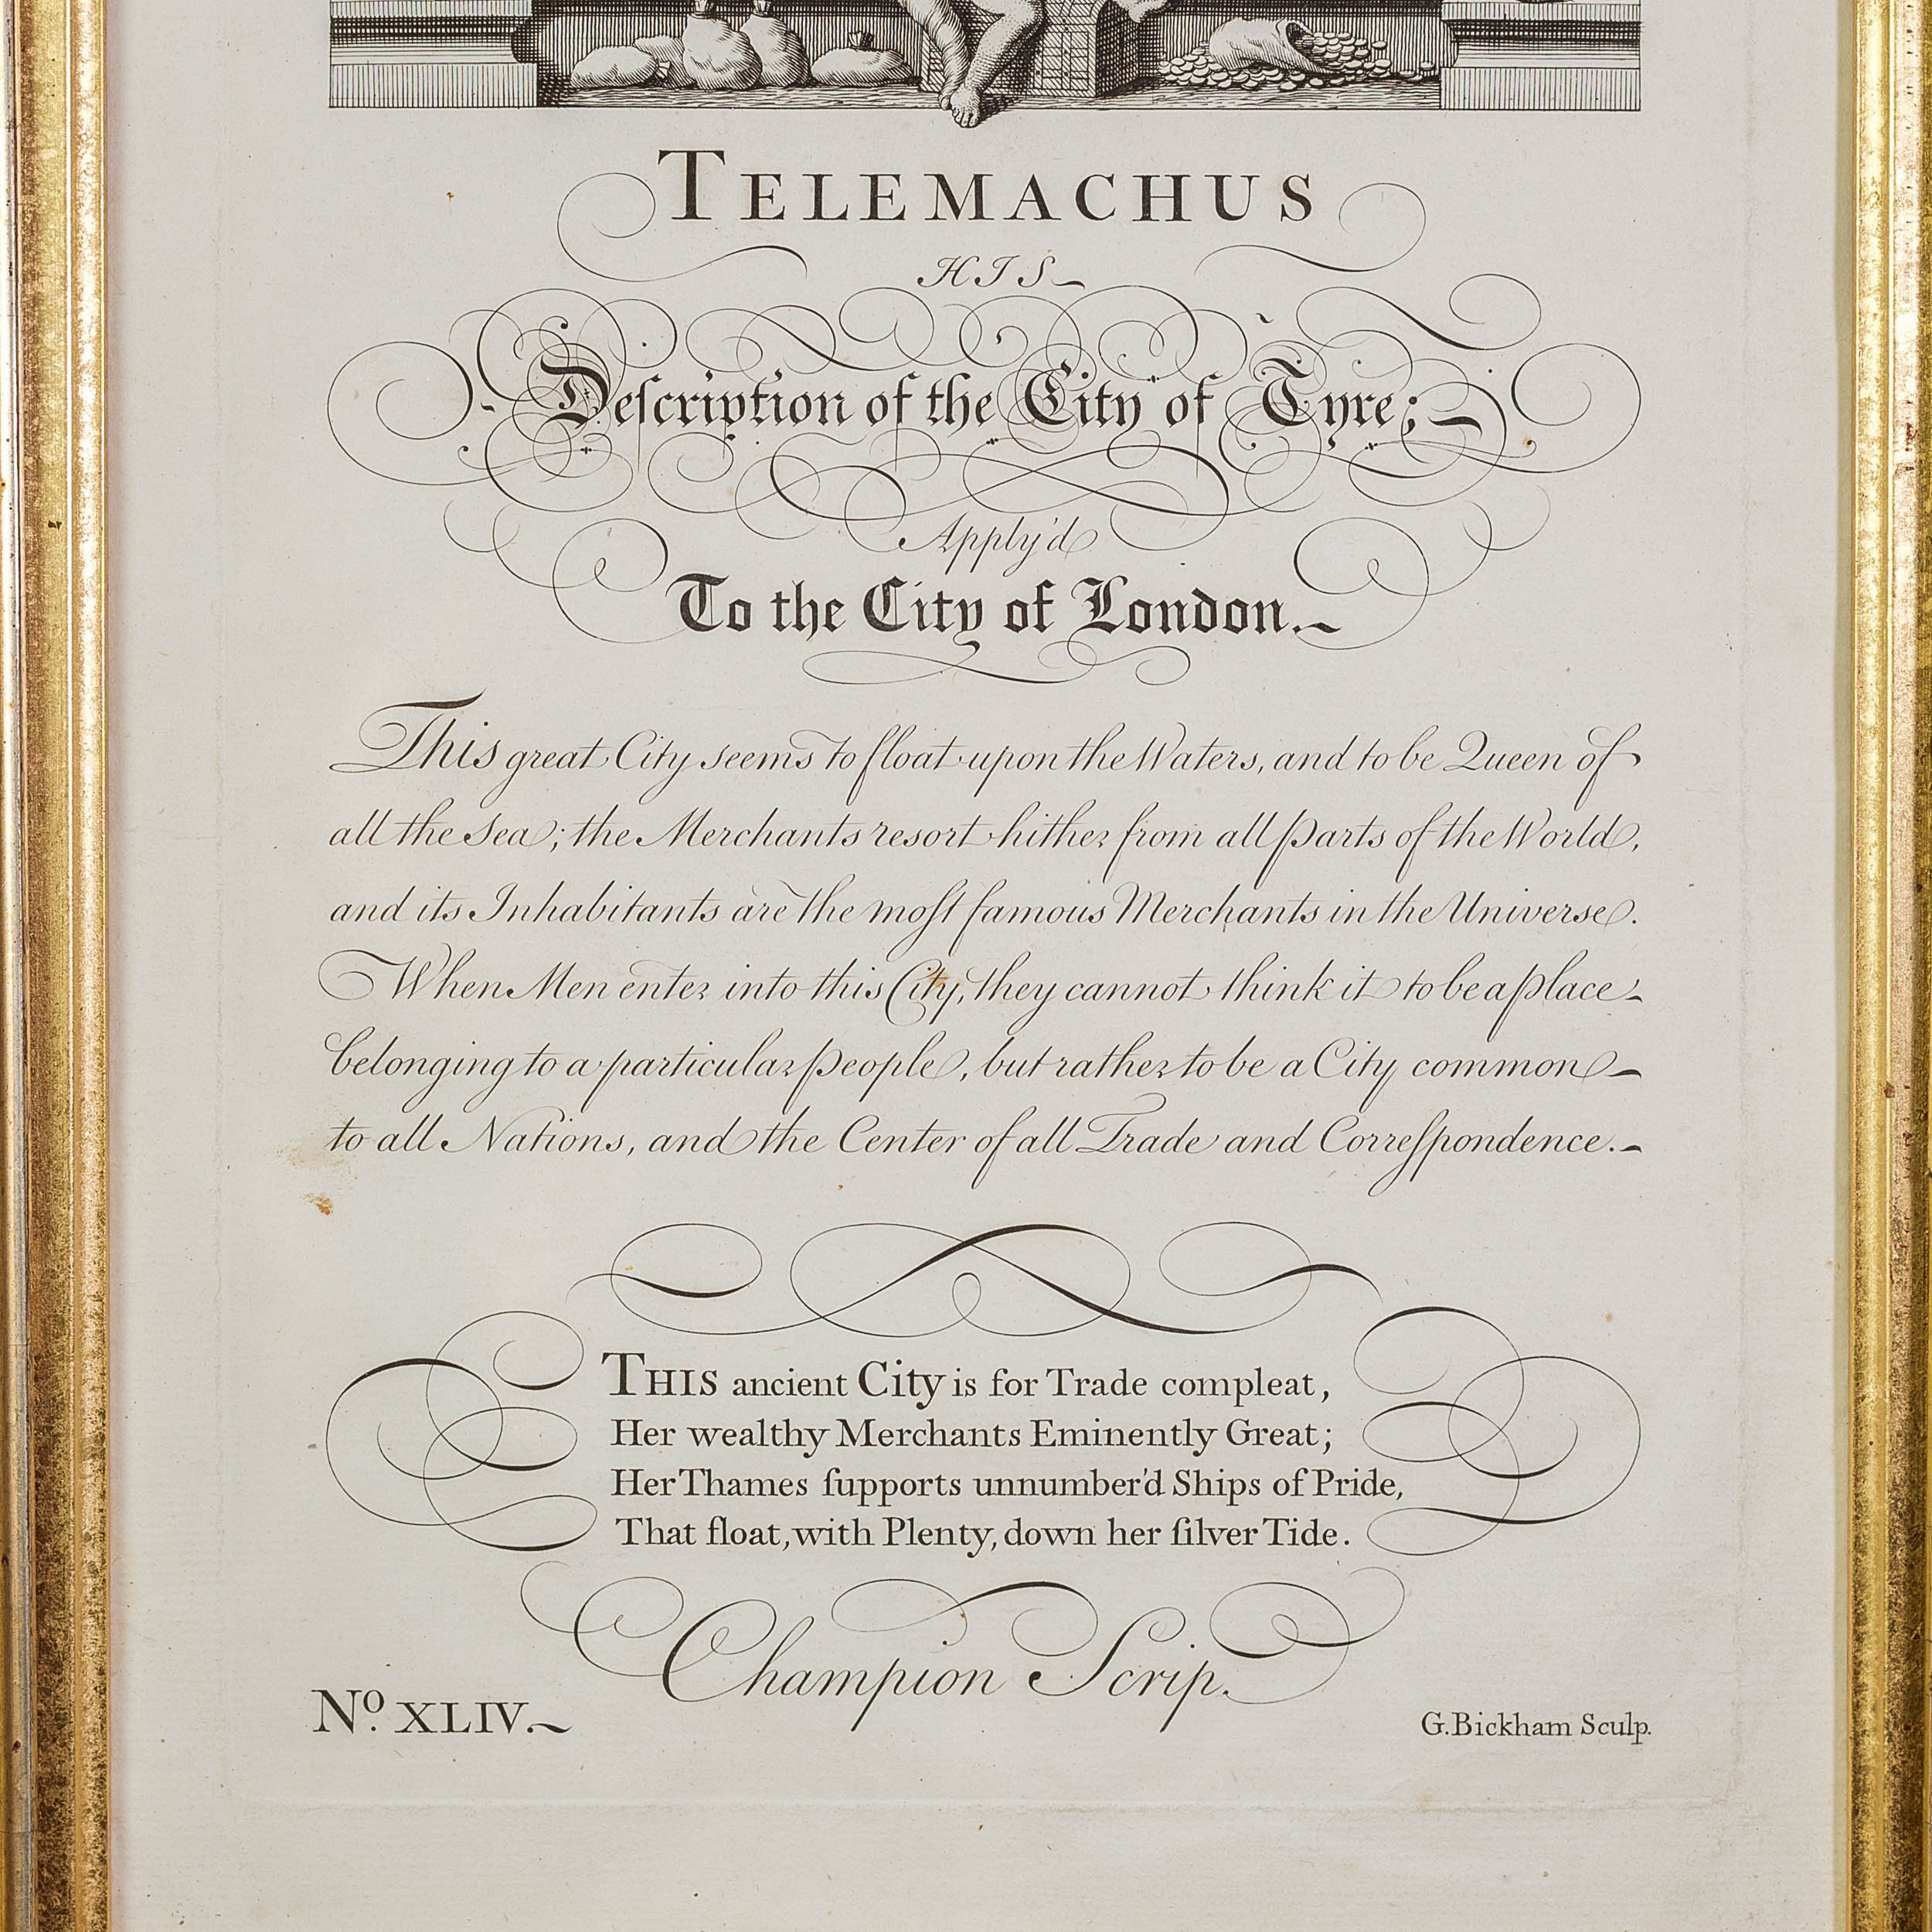 TELEMACHUS
HIS
Deſcription of the City of Tyre;
Apply'd
To the City of London.
This great City seems to float upon the Waters, and to be Queen of
all the Sea; the Merchants resort hither from all parts of the World,
and its Inhabitants are the moſt famous Merchants in the Universe.
When Men enter into this City, they cannot think it to be a place
belonging to a particular people, but rather to be a City common
to all Nations, and the Center of all Trade and Correſpondence.
THIS ancient City is for Trade compleat,
Her wealthy Merchants Eminently Great;
Her Thames ſupports unnumber'd Ships of Pride,
That float, with Plenty, down her ſilver Tide.
Champion Scrip.
No. XLIV.
G. Bickham Sculp.